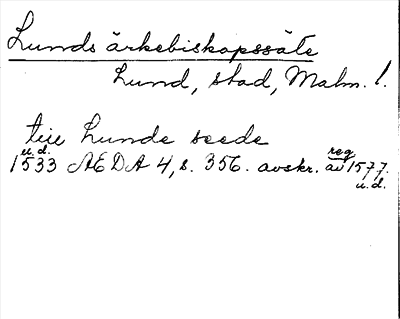 Lunds ärkebiskopssäte
Lund, stad, Malm. l.
till Lunde seede
u.d.
1533 AEDA 4, s. 356. avskr. av reg 1577.
u.d.